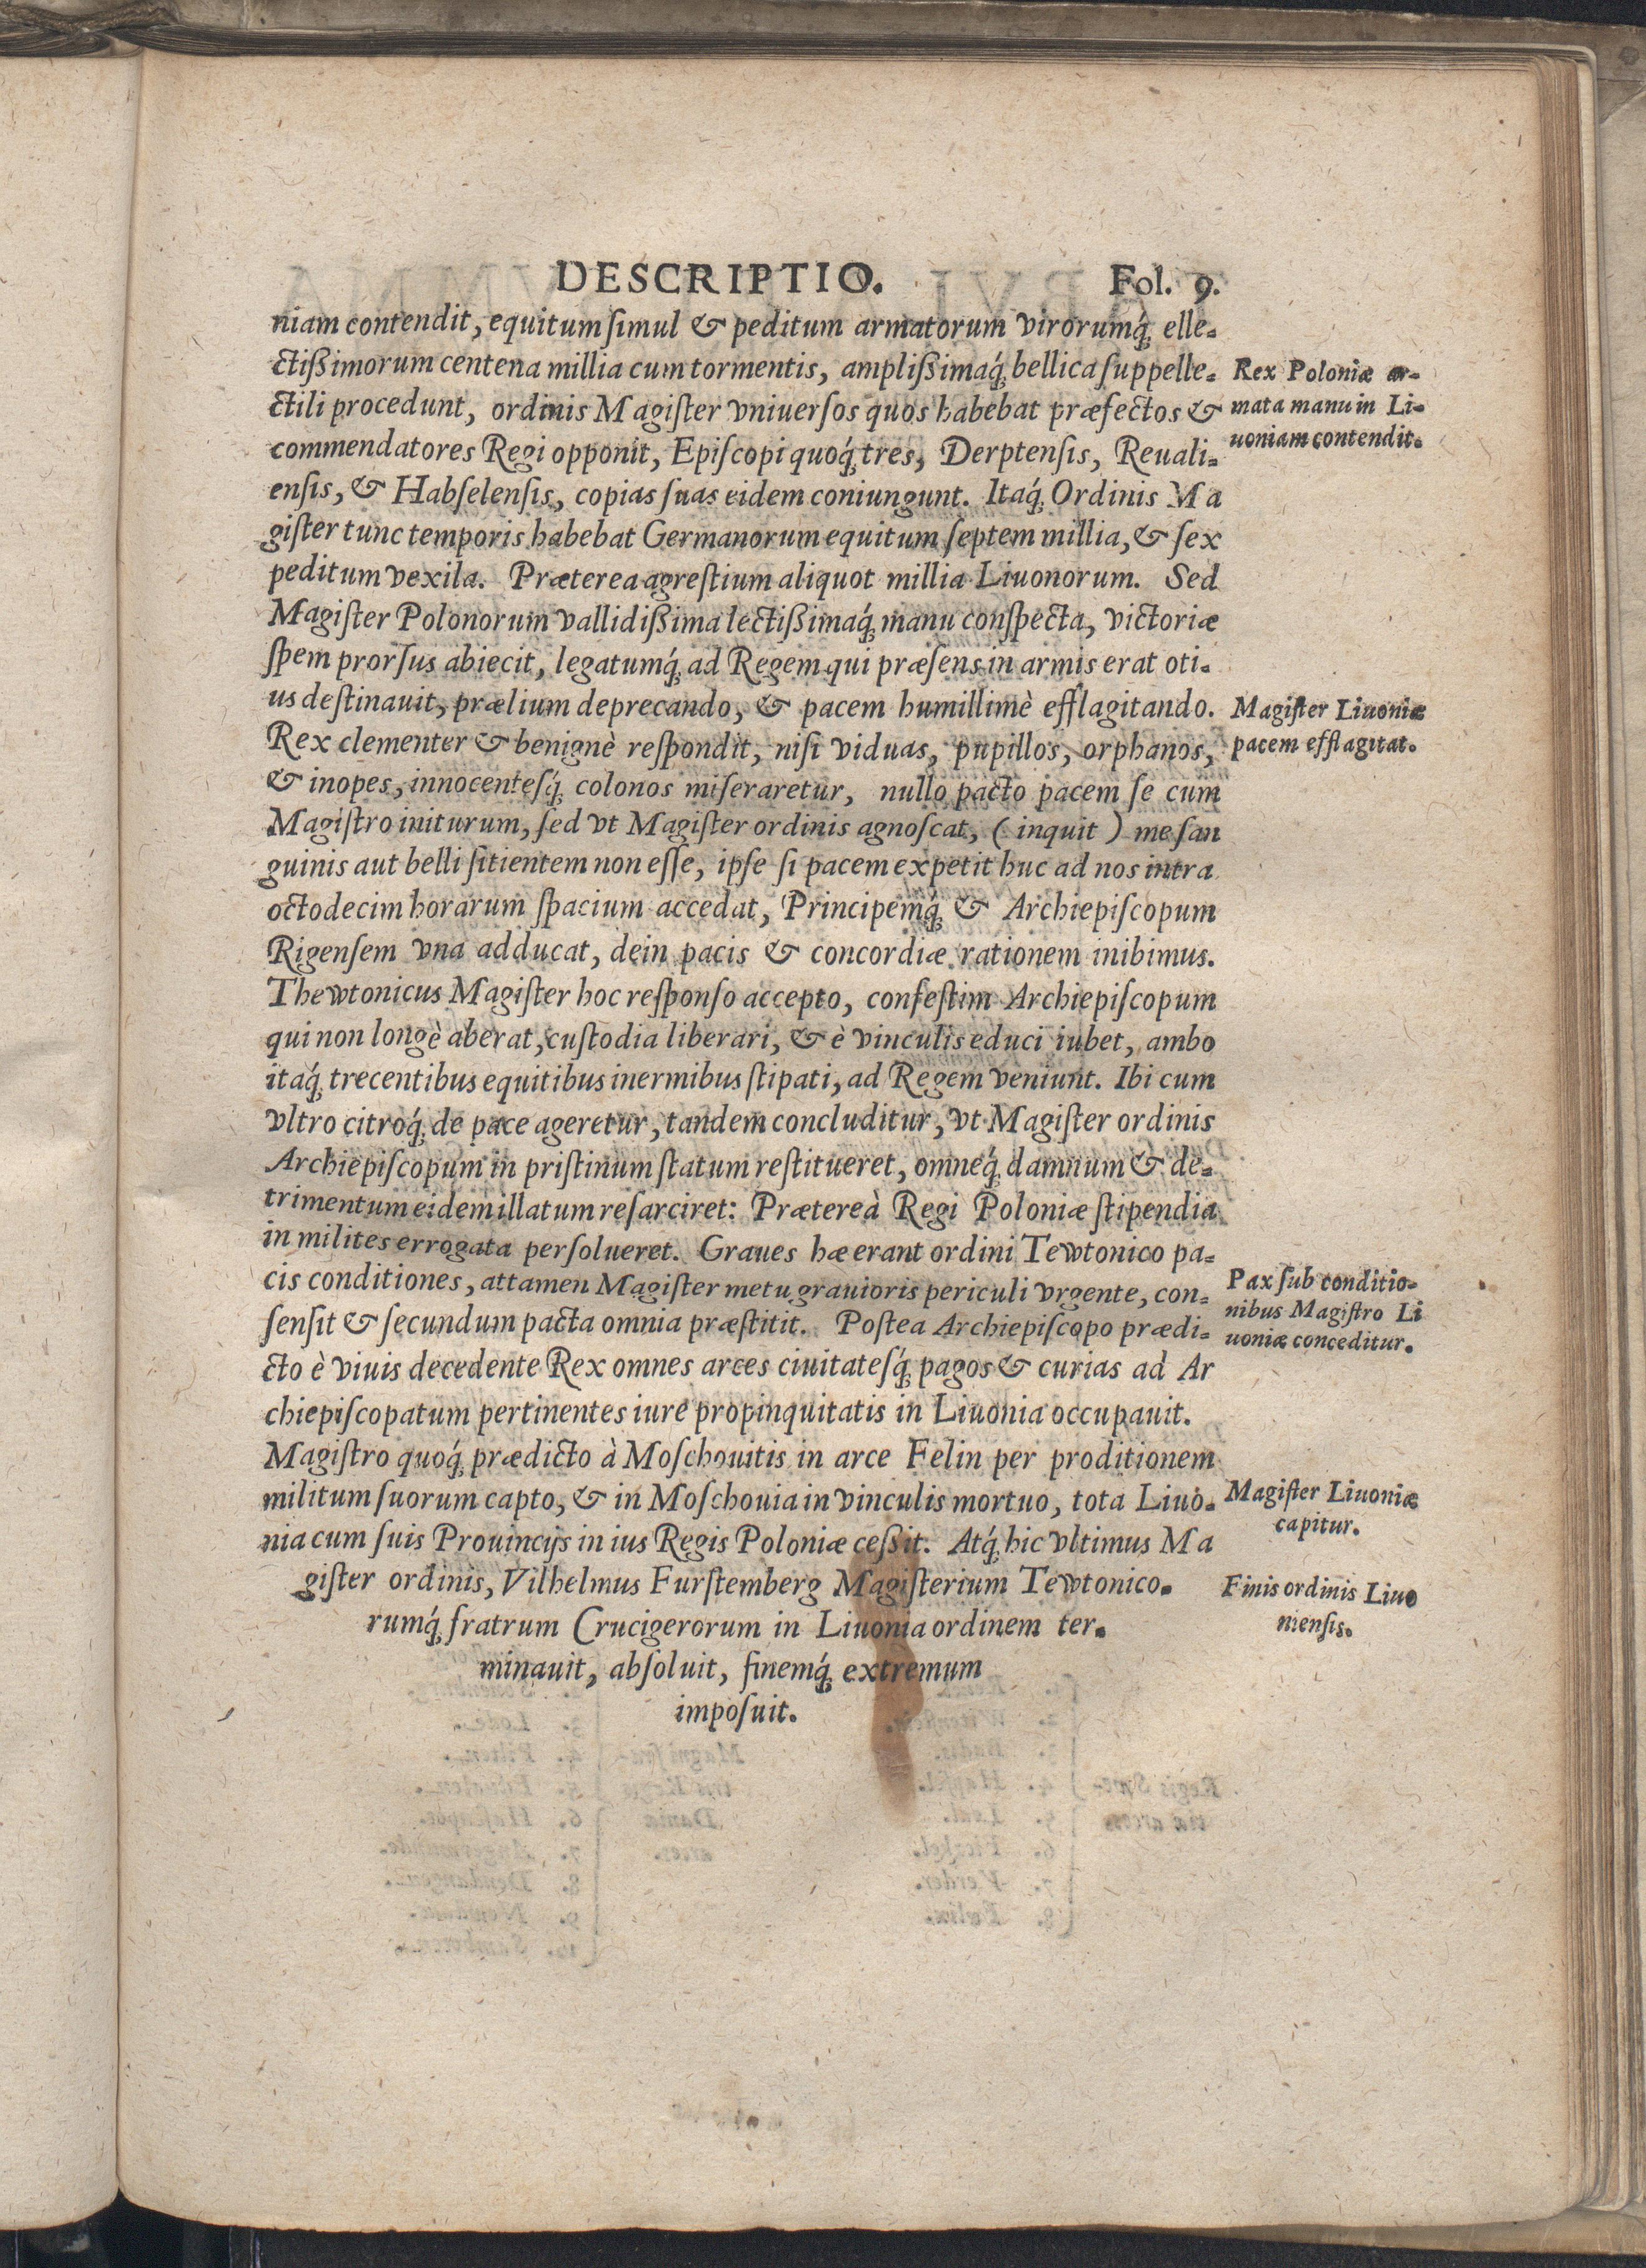 DESCRIPTIO. Fol. 9.
niam contendit, equitum ſimul & peditum armatorum virorumq́; elle-
ctißimorum centena millia cum tormentis, amplißimaq́; bellica ſuppelle-
ctili procedunt, ordinis Magiſter vniuerſos quos habebat præfectos &
commendatores Regi opponit, Epiſcopi quoq́; tres, Derptenſis, Reuali-
enſis, & Habſelenſis, copias ſuas eidem coniungunt. Itaq́; Ordinis Ma
giſter tunc temporis habebat Germanorum equitum ſeptem millia, & ſex
peditum vexila. Præterea agreſtium aliquot millia Liuonorum. Sed
Magiſter Polonorum vallidißima lectißimaq́; manu conſpecta, victoriæ
ſpem prorſus abiecit, legatumq́; ad Regem qui præſens in armis erat oti-
us deſtinauit, prælium deprecando, & pacem humillimè efflagitando.
Rex clementer & benignè reſpondit, niſi viduas, pupillos, orphanos,
& inopes, innocenteſq́; colonos miſeraretur, nullo pacto pacem ſe cum
Magiſtro initurum, ſed vt Magiſter ordinis agnoſcat, ( inquit ) me ſan
guinis aut belli ſitientem non eſſe, ipſe ſi pacem expetit huc ad nos intra
octodecim horarum ſpacium accedat, Principemq́; & Archiepiſcopum
Rigenſem vna adducat, dein pacis & concordiæ rationem inibimus.
Thewtonicus Magiſter hoc reſponſo accepto, confeſtim Archiepiſcopum
qui non longè aberat, cuſtodia liberari, & è vinculis educi iubet, ambo
itaq́; trecentibus equitibus inermibus ſtipati, ad Regem veniunt. Ibi cum
vltro citroq́; de pace ageretur, tandem concluditur, vt Magiſter ordinis
Archiepiſcopum in priſtinum ſtatum reſtitueret, omneq́; damnum & de-
trimentum eidem illatum reſarciret: Prætereà Regi Poloniæ ſtipendia
in milites errogata perſolueret. Graues hæ erant ordini Tewtonico pa-
cis conditiones, attamen Magiſter metu grauioris periculi vrgente, con-
ſenſit & ſecundum pacta omnia præſtitit. Poſtea Archiepiſcopo prædi-
cto è viuis decedente Rex omnes arces ciuitateſq́; pagos & curias ad Ar
chiepiſcopatum pertinentes iure propinquitatis in Liuonia occupauit.
Magiſtro quoq́; prædicto à Moſchouitis in arce Felin per proditionem
militum ſuorum capto, & in Moſchouia in vinculis mortuo, tota Liuo-
nia cum ſuis Prouincijs in ius Regis Poloniæ ceßit. Atq́; hic vltimus Ma
giſter ordinis, Vilhelmus Furſtemberg Magiſterium Tewtonico-
rumq́; fratrum Crucigerorum in Liuonia ordinem ter-
minauit, abſoluit, finemq́; extremum
impoſuit.
Rex Poloniæ ar-
mata manu in Li-
uoniam contendit.
Magiſter Liuoniæ
pacem efflagitat.
Pax ſub conditio-
nibus Magiſtro Li
uoniæ conceditur.
Magiſter Liuoniæ
capitur.
Finis ordinis Liuo
nienſis.